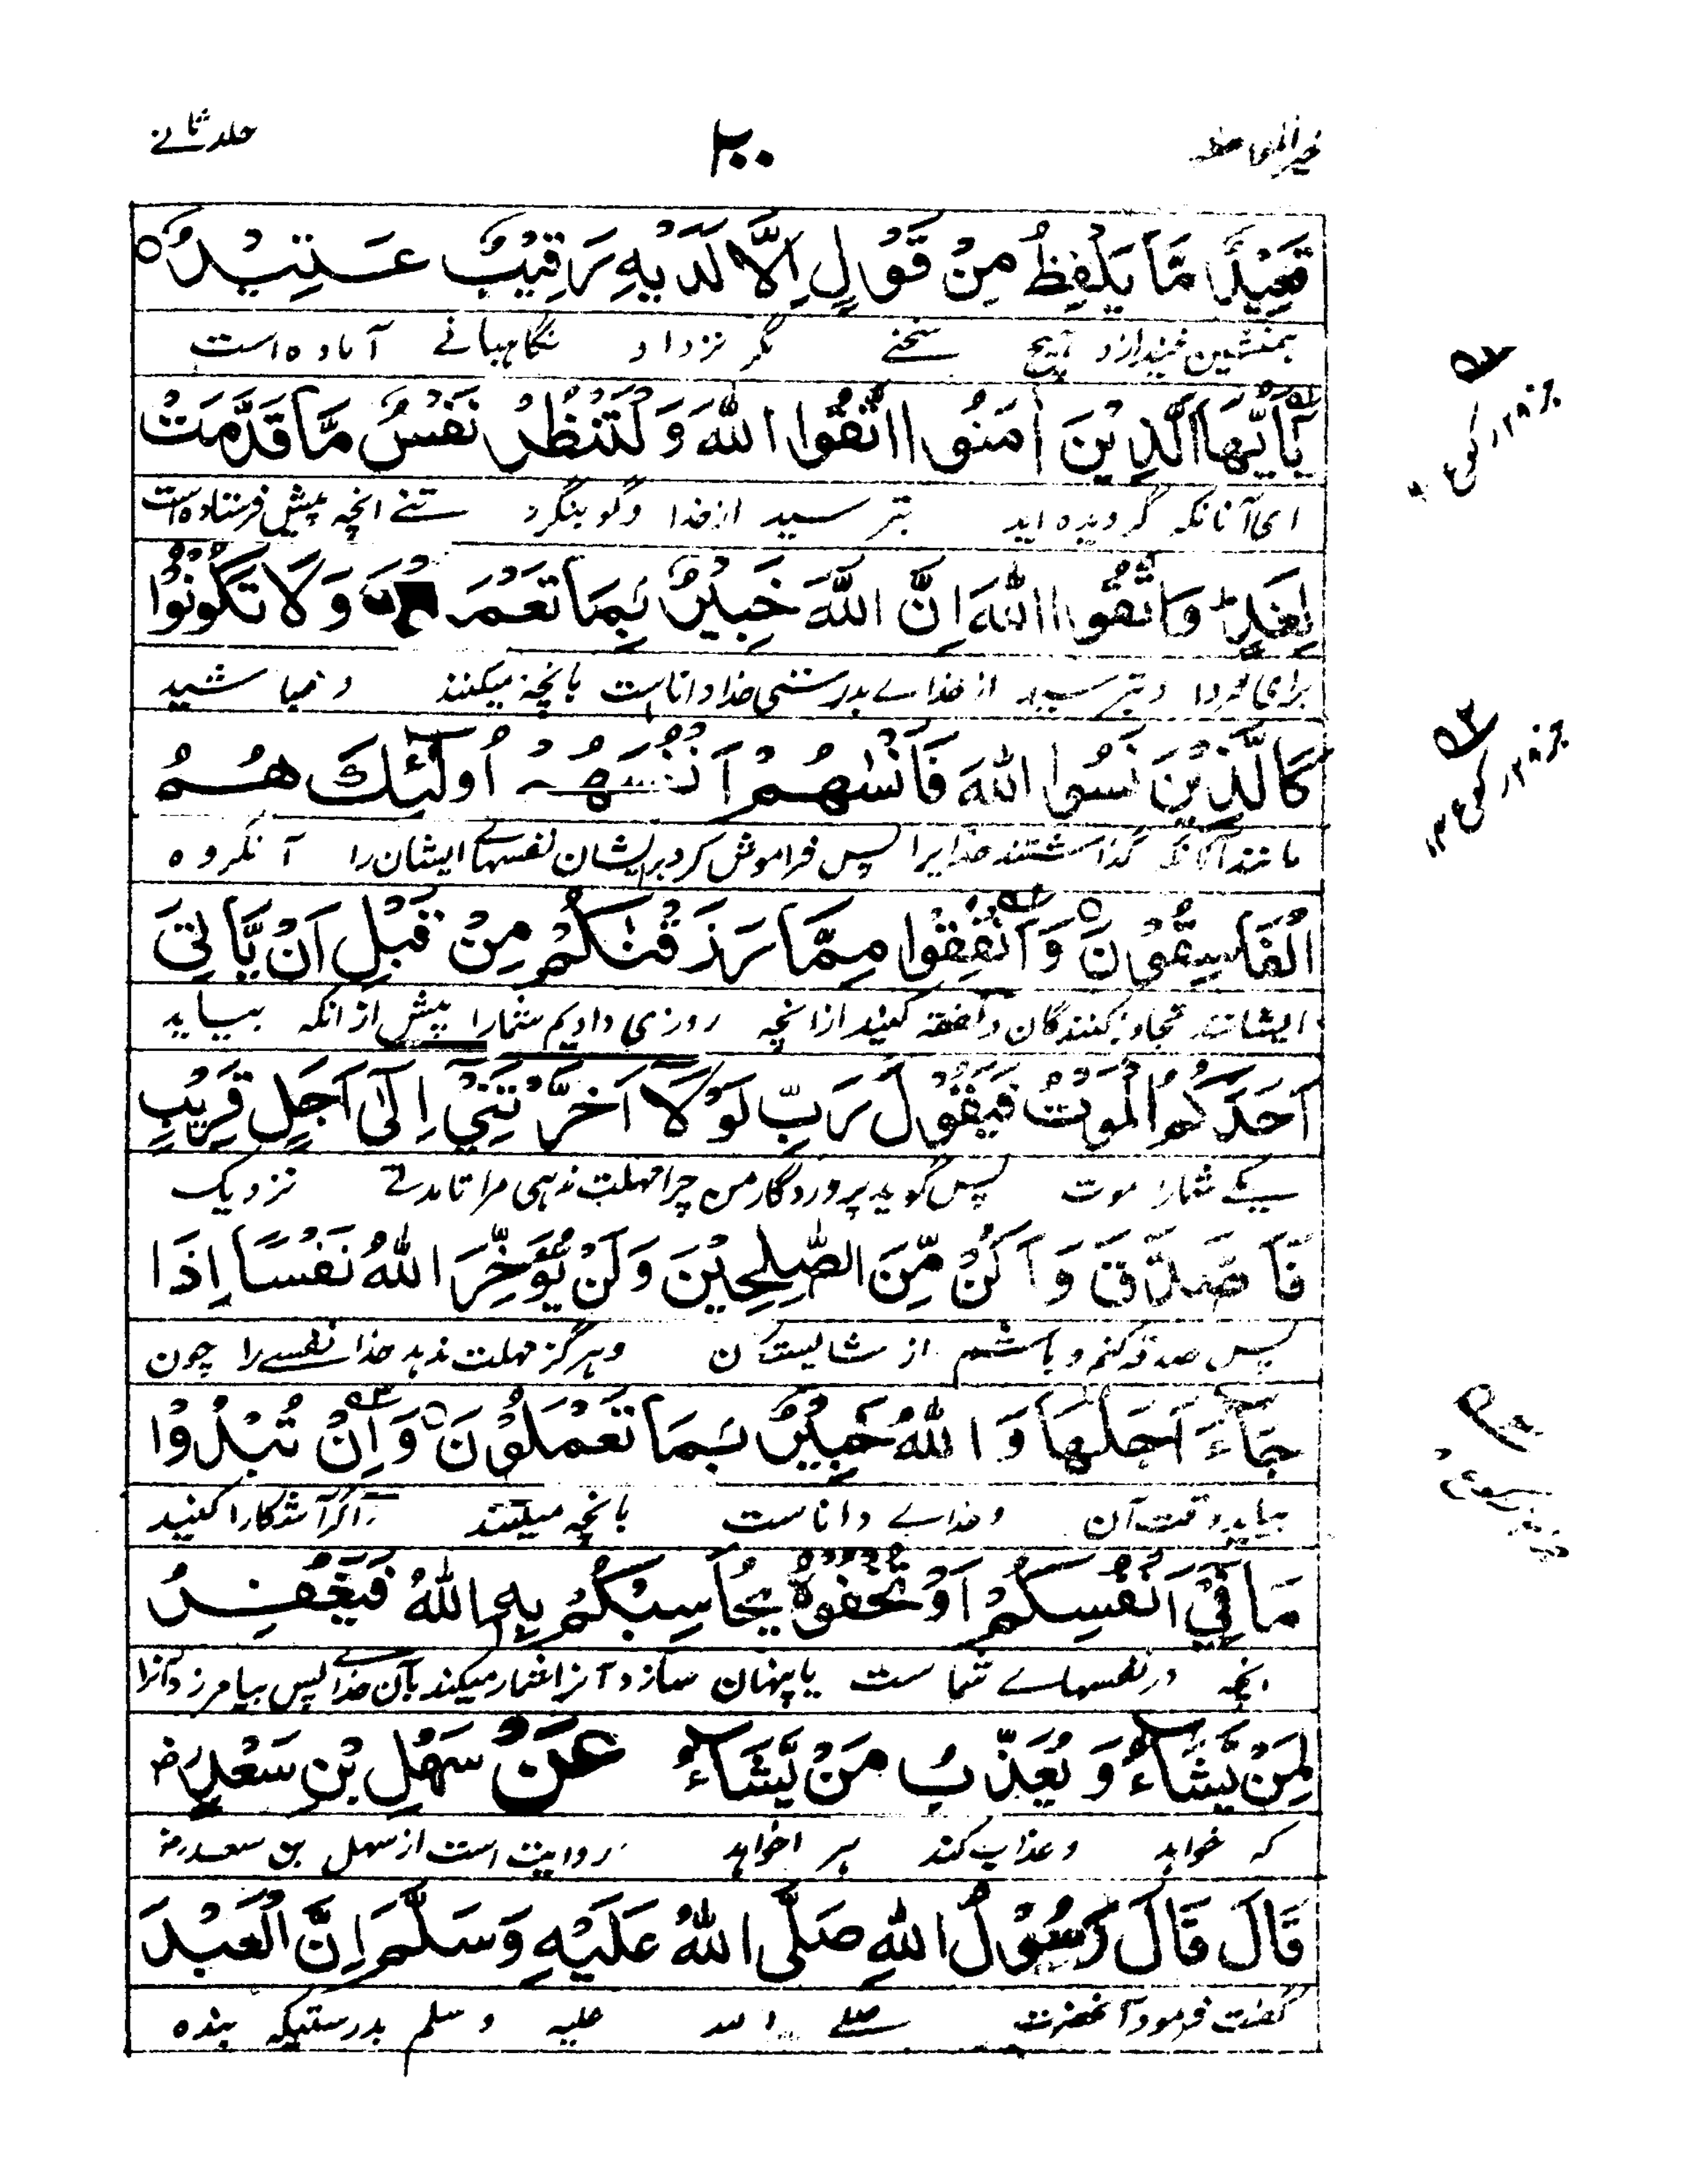 جلد ثانے
۲۰۰
قَعِيْدٌ مَّا يَلْفِظُ مِنْ قَوْلٍ اِلَّا لَدَيْهِ رَقِيْبٌ عَتِيْدٌ
همنشین نیندازد هیچ سخنے مگر نزد او نگاهبانے آماده است
يٰۤاَيُّهَا الَّذِيْنَ اٰمَنُوا اتَّقُوا اللّٰهَ وَلْتَنْظُرْ نَفْسٌ مَّا قَدَّمَتْ
ای آنانکه گرویده اید بترسید از خدا و گو بنگرد تنے انچه پیش فرستاده است
لِغَدٍ وَاتَّقُوا اللّٰهَ اِنَّ اللّٰهَ خَبِيْرٌ بِمَا تَعْمَ وَلَا تَكُوْنُوْا
برای فردا و بترسید از خداے بدرستی خدا داناست بانچه میکنند و مباشید
كَالَّذِيْنَ نَسُوا اللّٰهَ فَاَنْسٰهُمْ اَنْفُسَهُمْ اُولٰٓئِكَ هُمُ
مانند آنانکه گذاشتند خدایرا پس فراموش کرد بر ایشان نفسهاے ایشان را آنگروه
الْفَاسِقُوْنَ وَاَنْفِقُوْا مِمَّا رَزَقْنٰكُمْ مِنْ قَبْلِ اَنْ يَّاْتِيَ
ایشانند تجاوز کنندگان و نفقه کنید ازانچه روزی دادیم شمارا پیش ازانکه بیاید
اَحَدَكُمُ الْمَوْتُ فَيَقُوْلَ رَبِّ لَوْلَا اَخَّرْتَنِيْ اِلٰى اَجَلٍ قَرِيْبٍ
یکے شمارا موت پس گوید پروردگار من چرا مهلت ندهی مرا تا مدتے نزدیک
فَاَصَّدَّقَ وَاَكُنْ مِّنَ الصّٰلِحِيْنَ وَلَنْ يُّؤَخِّرَ اللّٰهُ نَفْسًا اِذَا
پس صدقه کنم و باشم از شایستگان و هرگز مهلت ندهد خدا نفسے را چون
جَآءَ اَجَلُهَا وَ اللّٰهُ خَبِيْرٌ بِمَا تَعْمَلُوْنَ وَاِنْ تُبْدُوْا
بیاید وقت آن و خداے داناست بانچه میکنند اگر آشکارا کنید
مَا فِيْ اَنْفُسِكُمْ اَوْ تُخْفُوْهُ يُحَاسِبْكُمْ بِهِ اللّٰهُ فَيَغْفِرُ
انچه در نفسهاے شماست یا پنهان سازد آنرا شمار میکند بآن خداے پس بیامرزد آنرا
لِمَنْ يَّشَآءُ وَ يُعَذِّبُ مَنْ يَّشَآءُ عَنْ سَهْلِ بْنِ سَعْدٍ رض
که خواهد و عذاب کند هر اخواهد روایت است از سهل بن سعد رض
قَالَ قَالَ رَسُوْلُ اللّٰهِ صَلَّى اللّٰهُ عَلَيْهِ وَسَلَّمَ اِنَّ الْعَبْدَ
گفت فرمود آنحضرت صلے الله علیه و سلم بدرستیکه بنده